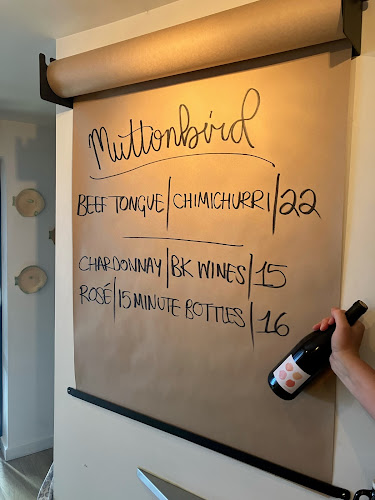 Muttonbird
BEEF TONGUE | CHIMICHURRI | 22
CHARDONNAY | BK WINES | 15
ROSÉ | 15 MINUTE BOTTLES | 16